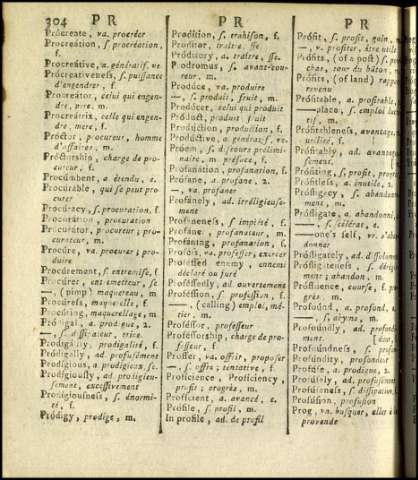 304 P R
Prócreate, va. procréer
Procreátion, f. procréation,
f.
Procreátive, a. génératif, ve
Prócreativeness, f. puissance
d'engendrer, f.
Procreátor, celui qui engen-
dre, père, m.
Procreátrix, celle qui engen-
dre, mere, f.
Próctor, procureur, homme
d'affaires, m.
Próctorship, charge de pro-
cureur, f.
Procúmbent, a. étendu, e.
Procúrable, qui se peut pro-
curer
Prócuracy, f. procuration, f.
Procurátion, procuration
Procurátor, procureur; pro-
curateur, m.
Procúre, va. procurer; pro-
duire
Procúrement, f. entremise, f.
Procúrer, entremetteur, se
—, (pimp) maquereau, m.
Procúress, maquerelle, f.
Procúring, maquerellage, m.
Pródigal, a. prodigue, 2.
—, f. dissipateur, trice
Prodigálity, prodigalité, f.
Pródigally, ad. profusément
Prodígious, a. prodigieux, se.
Prodígiously, ad. prodigieu-
sement, excessivement
Prodígiousness, f. énormi-
té, f.
Pródigy, prodige, m.
P R
Prodítion, f. trahison, f.
Próditor, traître, sse
Próditory, a. traître, sse.
Pródromus, f. avant-cou-
reur, m.
Prodúce, va. produire
—, f. produit, fruit, m.
Prodúcer, celui qui produit
Próduct, produit, fruit
Prodúction, production, f.
Prodúctive, a. génératif, ve.
Próem, f. discours prélimi-
naire, m. préface, f.
Profanátion, profanation, f.
Profáne, a. profane, 2.
—, va. profaner
Profánely, ad. irréligieuse-
ment
Profáneness, f. impiété, f.
Profáner, profanateur, m.
Profáning, profanation, f.
Proféss, va. professer, exercer
Proféssed enemy, ennemi
déclaré ou juré
Proféssedly, ad. ouvertement
Proféssion, f. profession, f.
— (calling) emploi, mé-
tier, m.
Proféssor, professeur
Proféssorship, charge de pro-
fesseur, f.
Próffer, va. offrir, proposer
—, f. offre; tentative, f.
Profícience, Profíciency,
profit; progrès, m.
Profícient, a. avancé, e.
Prófile, f. profil, m.
In profile, ad. de profil
P R
Prófit, f. profit, gain,
—, v. profiter, être utile
Prófits, (of a post) f.
chat, tour du bâton,
Prófits, (of land) rapport
revenu
Prófitable, a. profitable,
—place, f. emploi lucra-
tif, m.
Prófitableness, avantage,
utilité, f.
Prófitably, ad. avantageu-
sement.
Prófiting, f. profit, progrès
Prófitless, a. inutile, 2.
Prófligacy, f. abandonne-
ment, m.
Prófligate, a. abandonné,
—, f. scélérat, e.
—one's self, vr. s'aban-
donner
Prófligately, ad. dissolument
Prófligateness, f. dérègle-
ment; abandon, m.
Prófluence, course, f. pro-
grès, m.
Profóund, a. profond,
—, f. abyme, m.
Profóundly, ad. profondé-
ment.
Profóundness, f.
Profúndity, profondeur
Profúse, a. prodigue, 2.
Profúsely, ad. profusément
Profúseness, f. dissipation,
Profúsion, profusion
Prog, vn. busquer, aller à la
provende